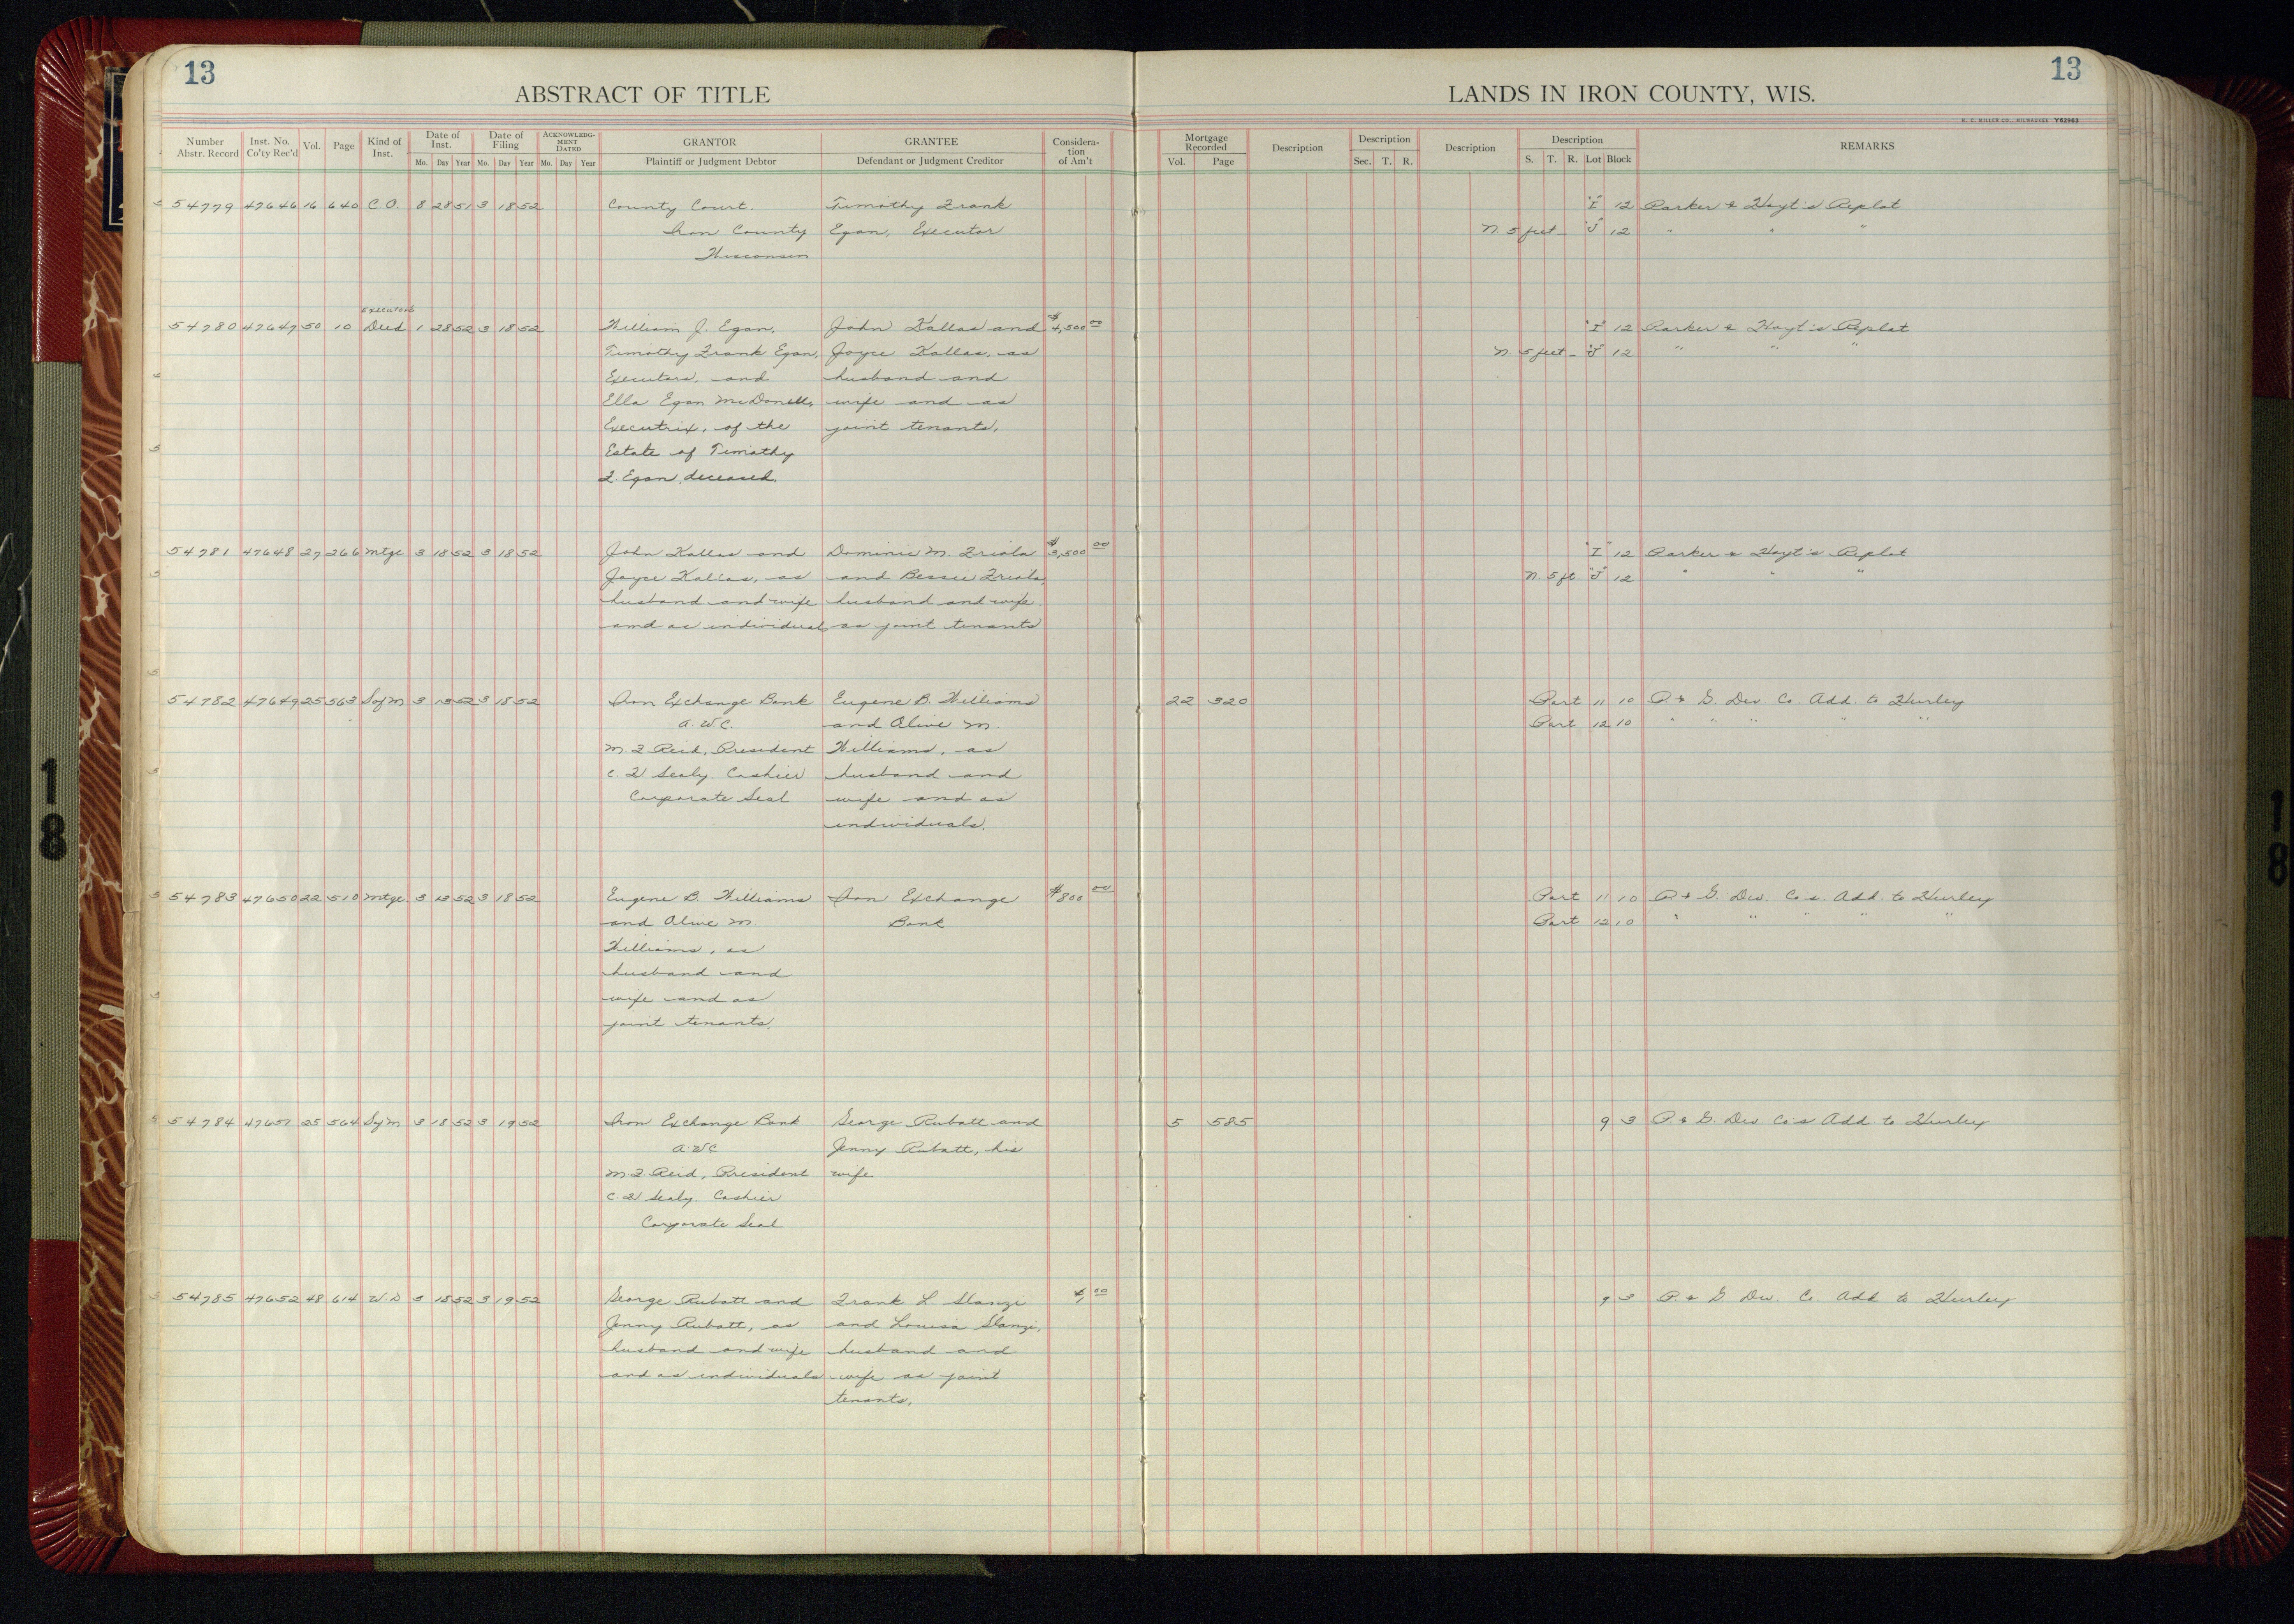 13
13
ABSTRACT OF TITLE
LANDS IN IRON COUNTY, WIS.
H. C. MILLER CO., MILWAUKEE Y62963
Number Abstr. Record
Inst. No. Co'ty Rec'd
Vol.
Page
Kind of Inst.
Date of Inst.
Mo. Day Year
Date of Filing
Mo. Day Year
ACKNOWLEDG-MENT DATED
Mo. Day Year
GRANTOR
Plaintiff or Judgment Debtor
GRANTEE
Defendant or Judgment Creditor
Considera-tion of Am't
Mortgage Recorded
Vol. Page
Description
Description
Sec. T. R.
Description
Description
S. T. R. Lot Block
REMARKS
54779 47646 16 640 C.O. 8 28 51 3 18 52 County Court. Timothy Frank "I" 12 Parker & Hoyt's Replat
Iron County Egan, Executor N. 5 feet "J" 12 " " "
Wisconsin
Executors
54780 47647 50 10 Deed 1 28 52 3 18 52 William J. Egan, John Kallas and $4,500 00 "I" 12 Parker & Hoyt's Replat
Timothy Frank Egan, Joyce Kallas, as N. 5 feet "J" 12 " " "
Executors, and husband and
Ella Egan McDonell, wife and as
Executrix, of the joint tenants.
Estate of Timothy
F. Egan, deceased.
54781 47648 27 266 Mtge 3 18 52 3 18 52 John Kallas and Dominic M. Friola $3,500 00 "I" 12 Parker & Hoyt's Replat
Joyce Kallas, as and Bessie Friola, N. 5 ft. "J" 12 " " "
husband and wife husband and wife
and as individuals as joint tenants
54782 47649 25 563 Sof M 3 13 52 3 18 52 Iron Exchange Bank Eugene B. Williams 22 320 Part 11 10 P. & G. Dev Co. Add. to Hurley
A. W C. and Alive M. Part 12 10 " " " " "
M. F. Reid, President Williams, as
C. F. Sealy. Cashier husband and
Corporate Seal wife and as
individuals.
54783 47650 22 510 Mtge. 3 13 52 3 18 52 Eugene B. Williams Iron Exchange $800 00 Part 11 10 P. & G. Dev. Co's. Add. to Hurley
and Alive M Bank Part 12 10 " " " " "
Williams, as
husband and
wife and as
joint tenants.
54784 47651 25 564 Sof M 3 18 52 3 19 52 Iron Exchange Bank George Rubatt and 5 585 9 3 P. & G. Dev Co's Add to Hurley
A. W C Jenny Rubatt, his
M F. Reid, President wife
C. F. Sealy. Cashier
Corporate Seal
54785 47652 48 614 W. D 3 18 52 3 19 52 George Rubatt and Frank L Slanzi 00 9 3 P. & G. Dev. Co. Add to Hurley
Jenny Rubatt, as and Louisa Slanzi,
husband and wife husband and
and as individuals wife as joint
tenants.
18
18